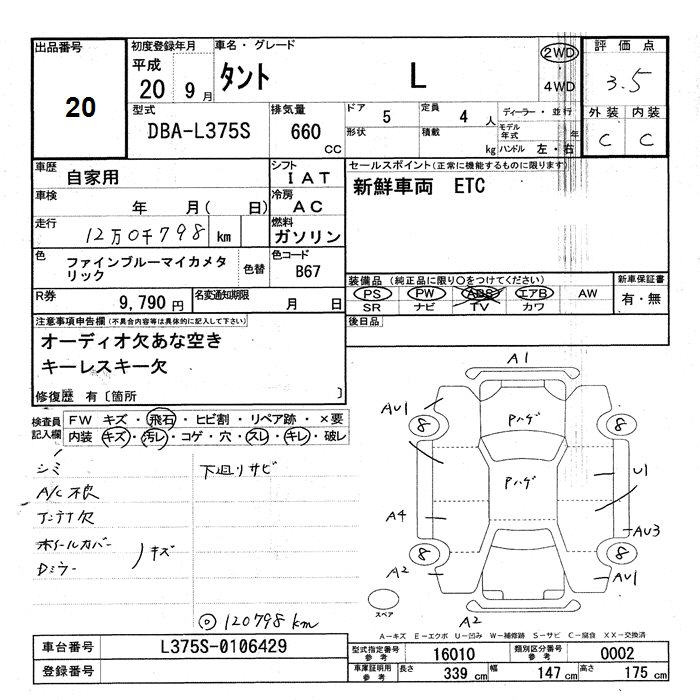 出品番号 20
初度登録年月 平成 20 9月
車名・グレード タント L
2WD
4WD
評価点 3.5
外装 内装
C C
型式 DBA-L375S
排気量 660 CC
ドア 5
定員 4 人
形状
積載 kg
ディーラー・並行
モデル年式 年
ハンドル 左・右
車歴 自家用
シフト IAT
車検 年 月( 日)
冷房 AC
走行 12万0千798 km
燃料 ガソリン
色 ファインブルーマイカメタリック
色替
色コード B67
R券 9,790円
名変通知期限 月 日
セールスポイント(正常に機能するものに限ります)
新鮮車両 ETC
装備品(純正品に限り○をつけてください)
PS PW ABS エアB AW
SR ナビ TV カワ
新車保証書
有・無
後日品
注意事項申告欄(不具合内容等は具体的に記入して下さい)
オーディオ欠あな空き
キーレスキー欠
修復歴 有〔箇所 〕
検査員記入欄
FW キズ・飛石・ヒビ割・リペア跡・×要
内装 キズ・汚レ・コゲ・穴・スレ・キレ・破レ
シミ
A/C不良
アンテナ欠
ホイールカバー
Dミラー
キズ
下廻りサビ
◎ 120798km
A1
AU1
8
Pハゲ
8
Pハゲ
U1
A4
AU3
8
8
A2
AU1
スペア
A2
A-キズ E-エクボ U-凹み W-補修跡 S-サビ C-腐食 XX-交換済
車台番号 L375S-0106429
登録番号
型式指定番号 参考 16010
類別区分番号 参考 0002
車庫証明用 参考 長さ 339 cm 幅 147 cm 高さ 175 cm